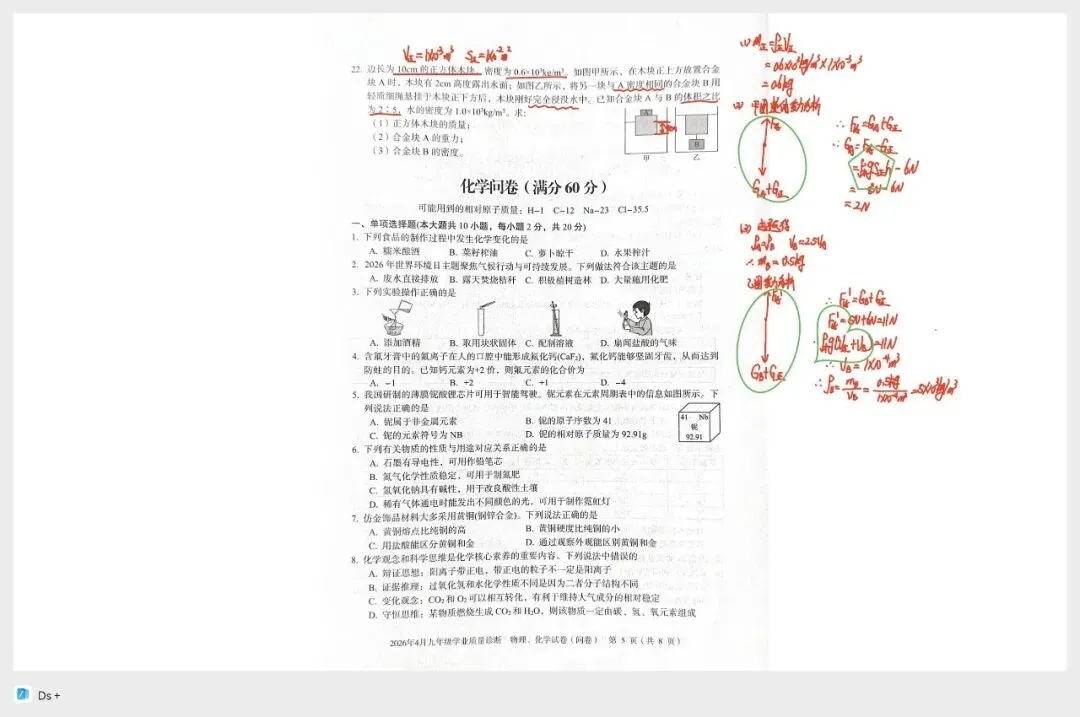 V正=1×10⁻³m³ S正=1×10⁻²m²
22. 边长为10cm的正方体木块，密度为0.6×10³kg/m³。如图甲所示，在木块正上方放置合金
块A时，木块有2cm高度露出水面；如图乙所示，将另一块与A密度相同的合金块B用
轻质细绳悬挂于木块正下方后，木块刚好完全浸没水中。已知合金块A与B的体积之比
为2：5，水的密度为1.0×10³kg/m³。求：
(1) 正方体木块的质量；
(2) 合金块A的重力；
(3) 合金块B的密度。
A
B
甲
乙
化学问卷（满分60分）
可能用到的相对原子质量：H-1 C-12 Na-23 Cl-35.5
一、单项选择题(本大题共10小题，每小题2分，共20分)
1. 下列食品的制作过程中发生化学变化的是
A. 糯米酿酒 B. 菜籽榨油 C. 萝卜晾干 D. 水果榨汁
2. 2026年世界环境日主题聚焦气候行动与可持续发展。下列做法符合该主题的是
A. 废水直接排放 B. 露天焚烧秸秆 C. 积极植树造林 D. 大量施用化肥
3. 下列实验操作正确的是
A. 添加酒精 B. 取用块状固体 C. 配制溶液 D. 扇闻盐酸的气味
4. 含氟牙膏中的氟离子在人的口腔中能形成氟化钙(CaF₂)，氟化钙能够坚固牙齿，从而达到
防蛀的目的。已知钙元素为+2价，则氟元素的化合价为
A. -1 B. +2 C. +1 D. -4
5. 我国研制的薄膜铌酸锂芯片可用于智能驾驶。铌元素在元素周期表中的信息如图所示。下
列说法正确的是
A. 铌属于非金属元素 B. 铌的原子序数为41
C. 铌的元素符号为NB D. 铌的相对原子质量为92.91g
41 Nb
铌
92.91
6. 下列有关物质的性质与用途对应关系正确的是
A. 石墨有导电性，可用作铅笔芯
B. 氮气化学性质稳定，可用于制氮肥
C. 氢氧化钠具有碱性，用于改良酸性土壤
D. 稀有气体通电时能发出不同颜色的光，可用于制作霓虹灯
7. 仿金饰品材料大多采用黄铜(铜锌合金)。下列说法正确的是
A. 黄铜熔点比纯铜的高 B. 黄铜硬度比纯铜的小
C. 用盐酸能区分黄铜和金 D. 通过观察外观能区别黄铜和金
8. 化学观念和科学思维是化学核心素养的重要内容。下列说法中错误的
A. 辩证思想：阳离子带正电，带正电的粒子不一定是阳离子
B. 证据推理：过氧化氢和水化学性质不同是因为二者分子结构不同
C. 变化观念：CO₂和O₂可以相互转化，有利于维持大气成分的相对稳定
D. 守恒思维：某物质燃烧生成CO₂和H₂O，则该物质一定由碳、氢、氧元素组成
2026年4月九年级学业质量诊断 物理、化学试卷（问卷） 第5页（共8页）
(1) m正=ρ正V正
=0.6×10³kg/m³×1×10⁻³m³
=0.6kg
F浮
GA+G正
∴F浮=GA+G正
∴GA=F浮-G正
=ρ水gS正h-6N
=8N-6N
=2N
(3)
ρA=ρB VB=2.5VA
∴mB=0.5kg
乙图受力分析
F浮'
GB+G正
∴F浮'=GB+G正
F浮'=5N+6N=11N
ρ水g(V正+VB)=11N
∴VB=1×10⁻⁴m³
∴ρB=mB/VB=0.5kg/1×10⁻⁴m³=5×10³kg/m³
Ds+